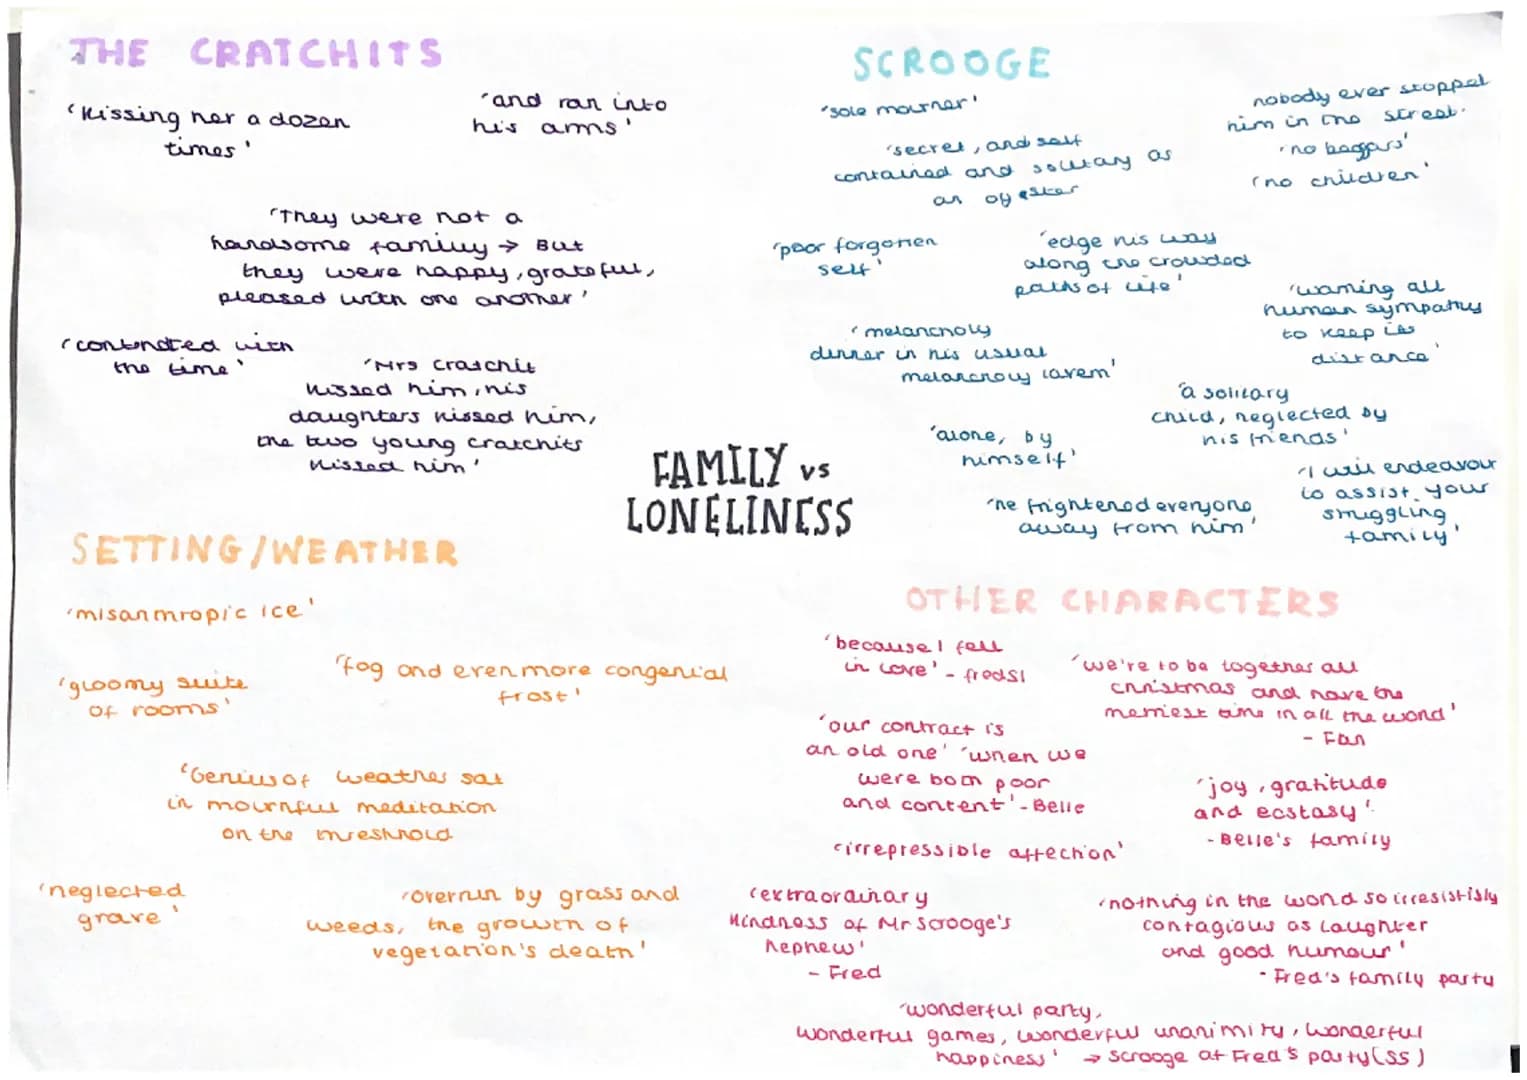 THE CRATCHITS
'Kissing her a dozen
times'
'and ran into
his arms'
'They were not a
handsome family → But
they were happy, grateful,
pleased with one another'
'contended with
the time'
'Mrs Cratchit
kissed him, his
daughters kissed him,
the two young cratchits
kissed him'
SCROOGE
'sole mourner'
nobody ever stopped
him in the street.
'no beggars'
'no children'
'secret, and self
contained and solitary as
an oyster
'poor forgotten
self'
'edge his way
along the crowded
paths of life'
'warning all
human sympathy
to keep its
distance'
'melancholy
dinner in his usual
melancholy tavern'
'a solitary
child, neglected by
his friends'
'alone, by
himself'
'I will endeavour
to assist your
struggling
family'
'he frightened everyone
away from him'
FAMILY vs
LONELINESS
SETTING/WEATHER
'misanthropic ice'
'gloomy suite
of rooms'
'fog and even more congenial
frost'
'Genius of weather sat
in mournful meditation
on the threshold
'neglected
grave'
'overrun by grass and
weeds, the growth of
vegetation's death'
OTHER CHARACTERS
'because I fell
in love' - freds1
'we're to be together all
christmas and have the
merriest time in all the world'
- Fan
'our contract is
an old one' 'when we
were both poor
and content' - Belle
'joy, gratitude
and ecstasy'.
- Belle's family
'irrepressible affection'
'extraordinary
kindness of Mr Scrooge's
nephew'
- Fred
'nothing in the world so irresistisly
contagious as laughter
and good humour'
- Fred's family party
'wonderful party,
wonderful games, wonderful unanimity, wonderful
happiness' → Scrooge at Fred's party (S5)